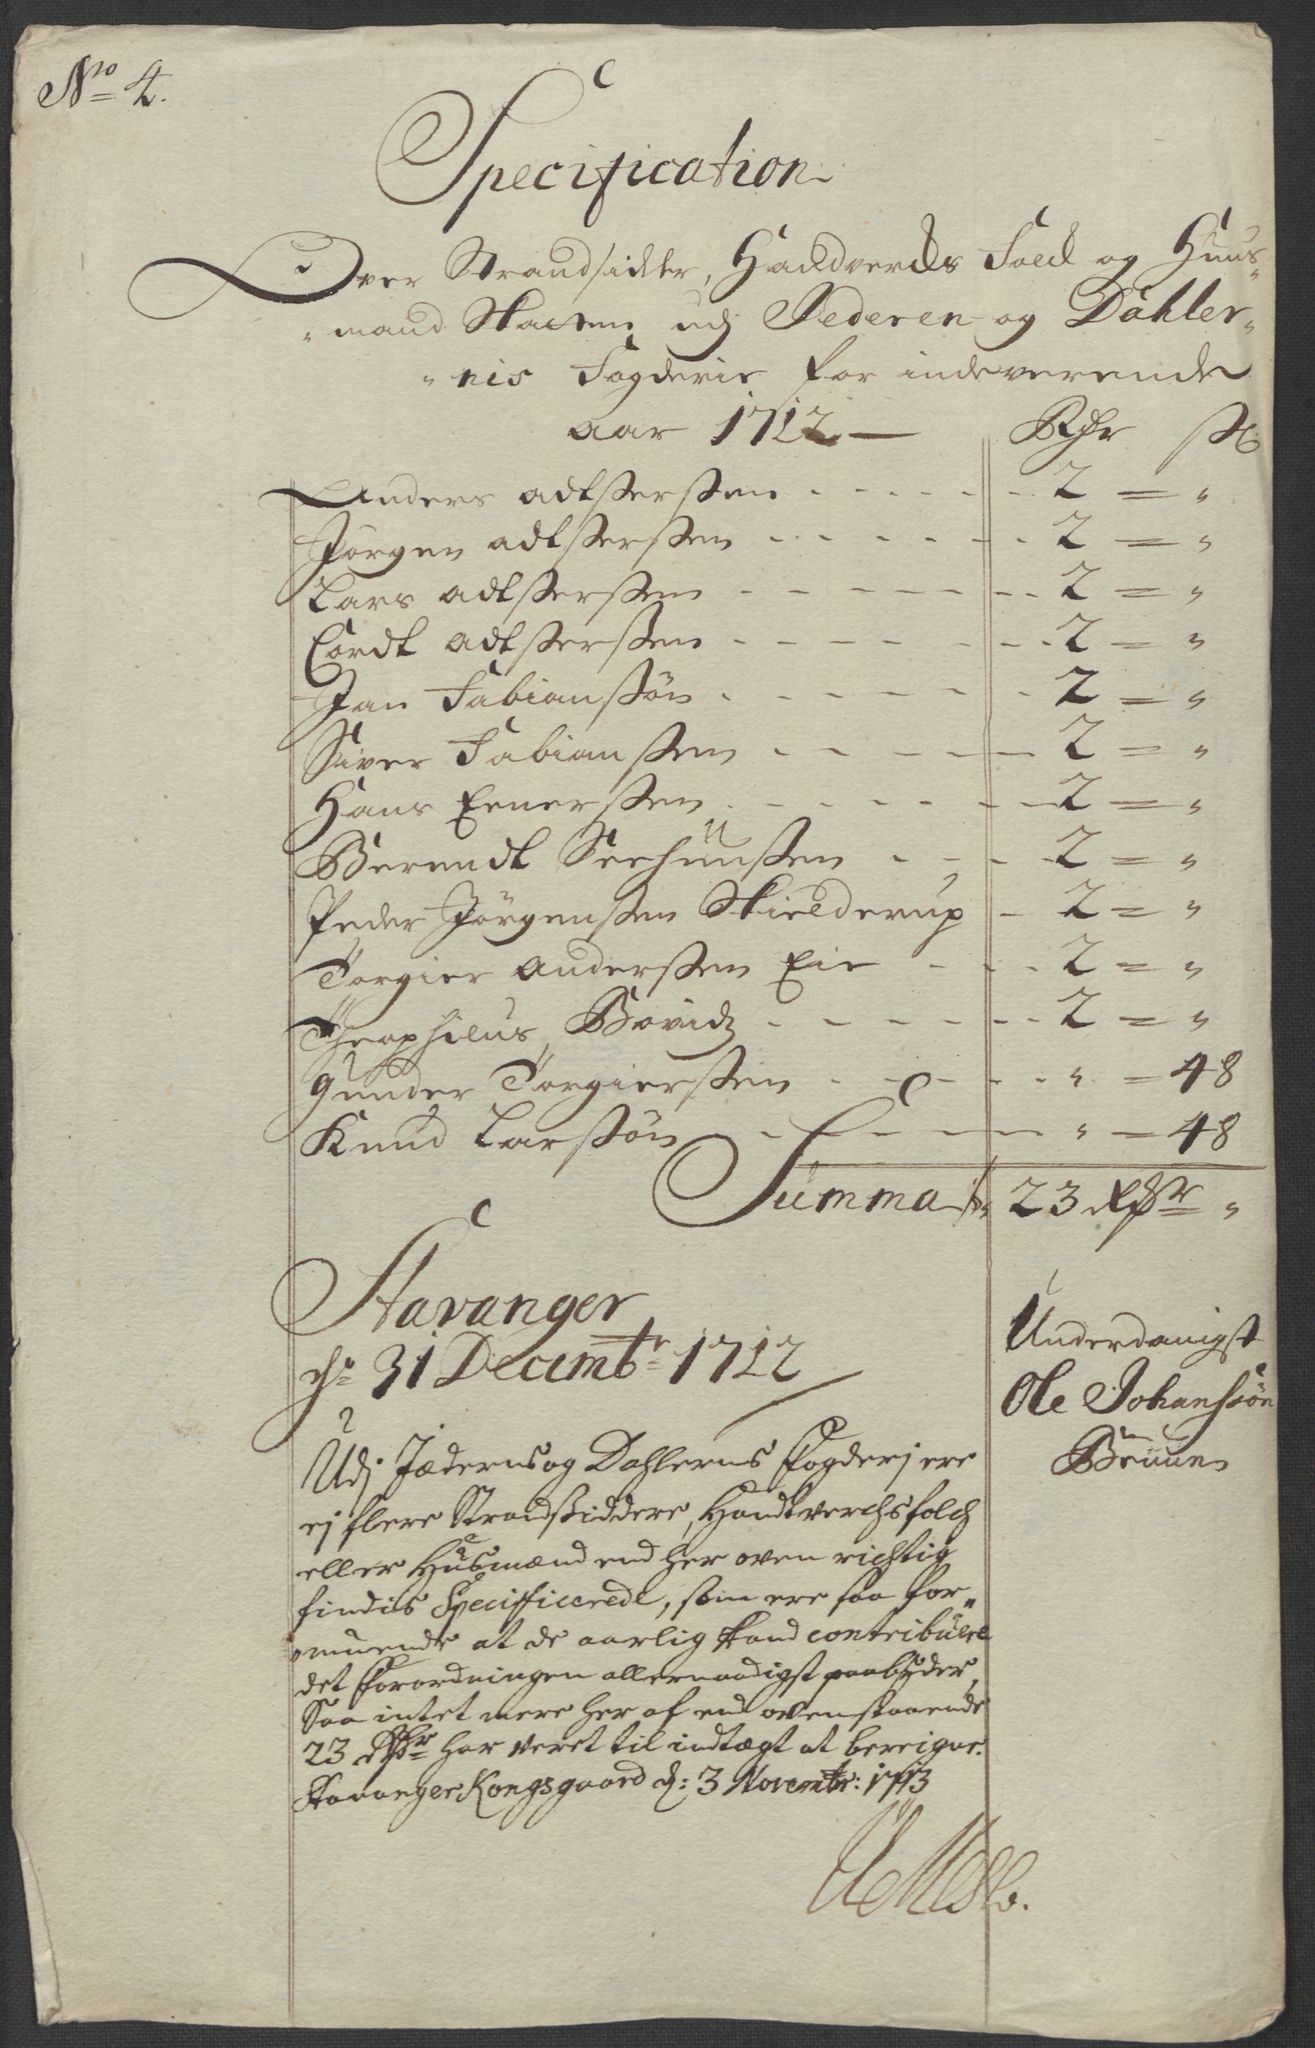 No 4.
Specification
Over Strandsidder, Handverchs Folck og Huus-
mand Skatten udj Jederen og Dahler-
nis Fogderie for indeverende
aar 1712 Rdr sk
Anders adtzersen 2 = "
Jørgen adtzersen 2 = "
Lars adtzersen 2 = "
Cordt adtzersen 2 = "
Jan Fabiansøn 2 = "
Siver Fabiansen 2 = "
Hans Eenersen 2 = "
Berendt Seehuusen 2 = "
Peder Jørgensen Skielderup 2 = "
Torgier andersen Eie 2 = "
Theophilus 2 = "
Gunder Torgiersen " = 48
Knud Larsøn " = 48
Summa 23 Rdr "
Stavanger
ds 31 Decembr 1712
Underdanigst
Ole Johansøn
Udj Jæderns og Dahlerns Fogderj ere
ej flere Strandsiddere, Handtverchsfolch
eller Husmænd end her oven richtig
findis Specificerede, som ere saa for-
muende at de aarlig kand contribuere
det Forordningen allernaadigst paabyder,
Saa intet mere her af end ovenstaaende
23 Rdr har veret til indtægt at bereigne.
Stavanger Kongsgaard d: 3 Novembr: 1713